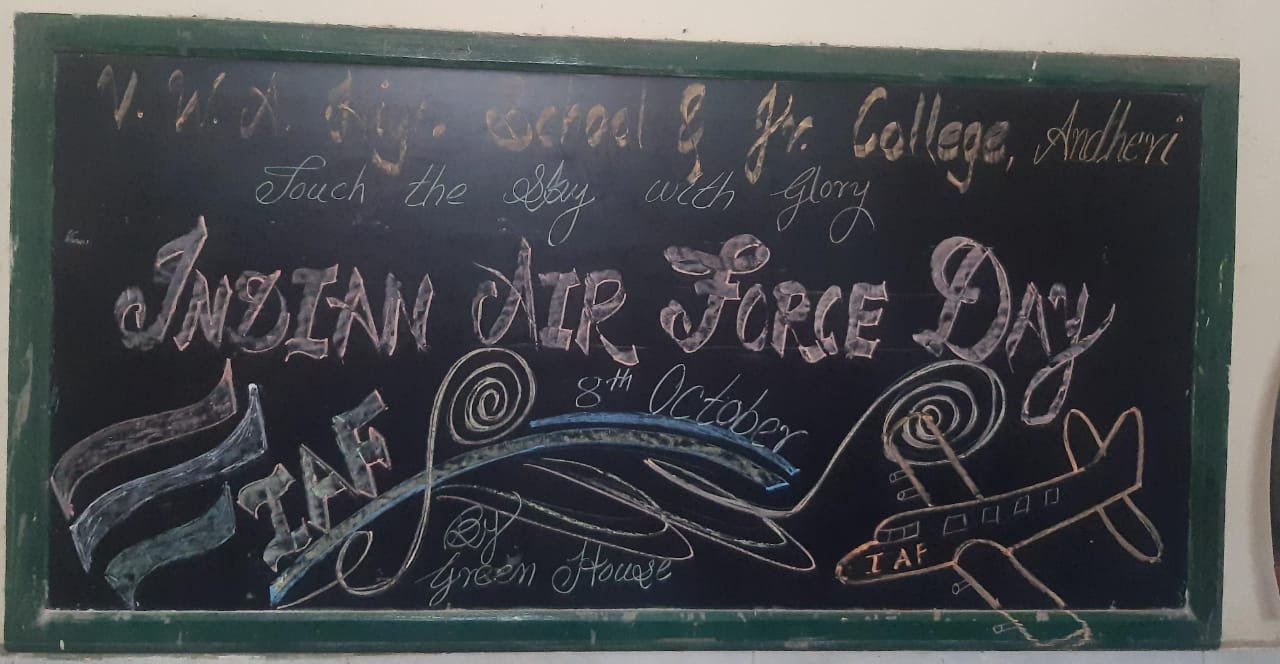 V. W. A. High School & Jr. College, Andheri
Touch the Sky with Glory
INDIAN AIR FORCE DAY
8th October
IAF
By
Green House
IAF